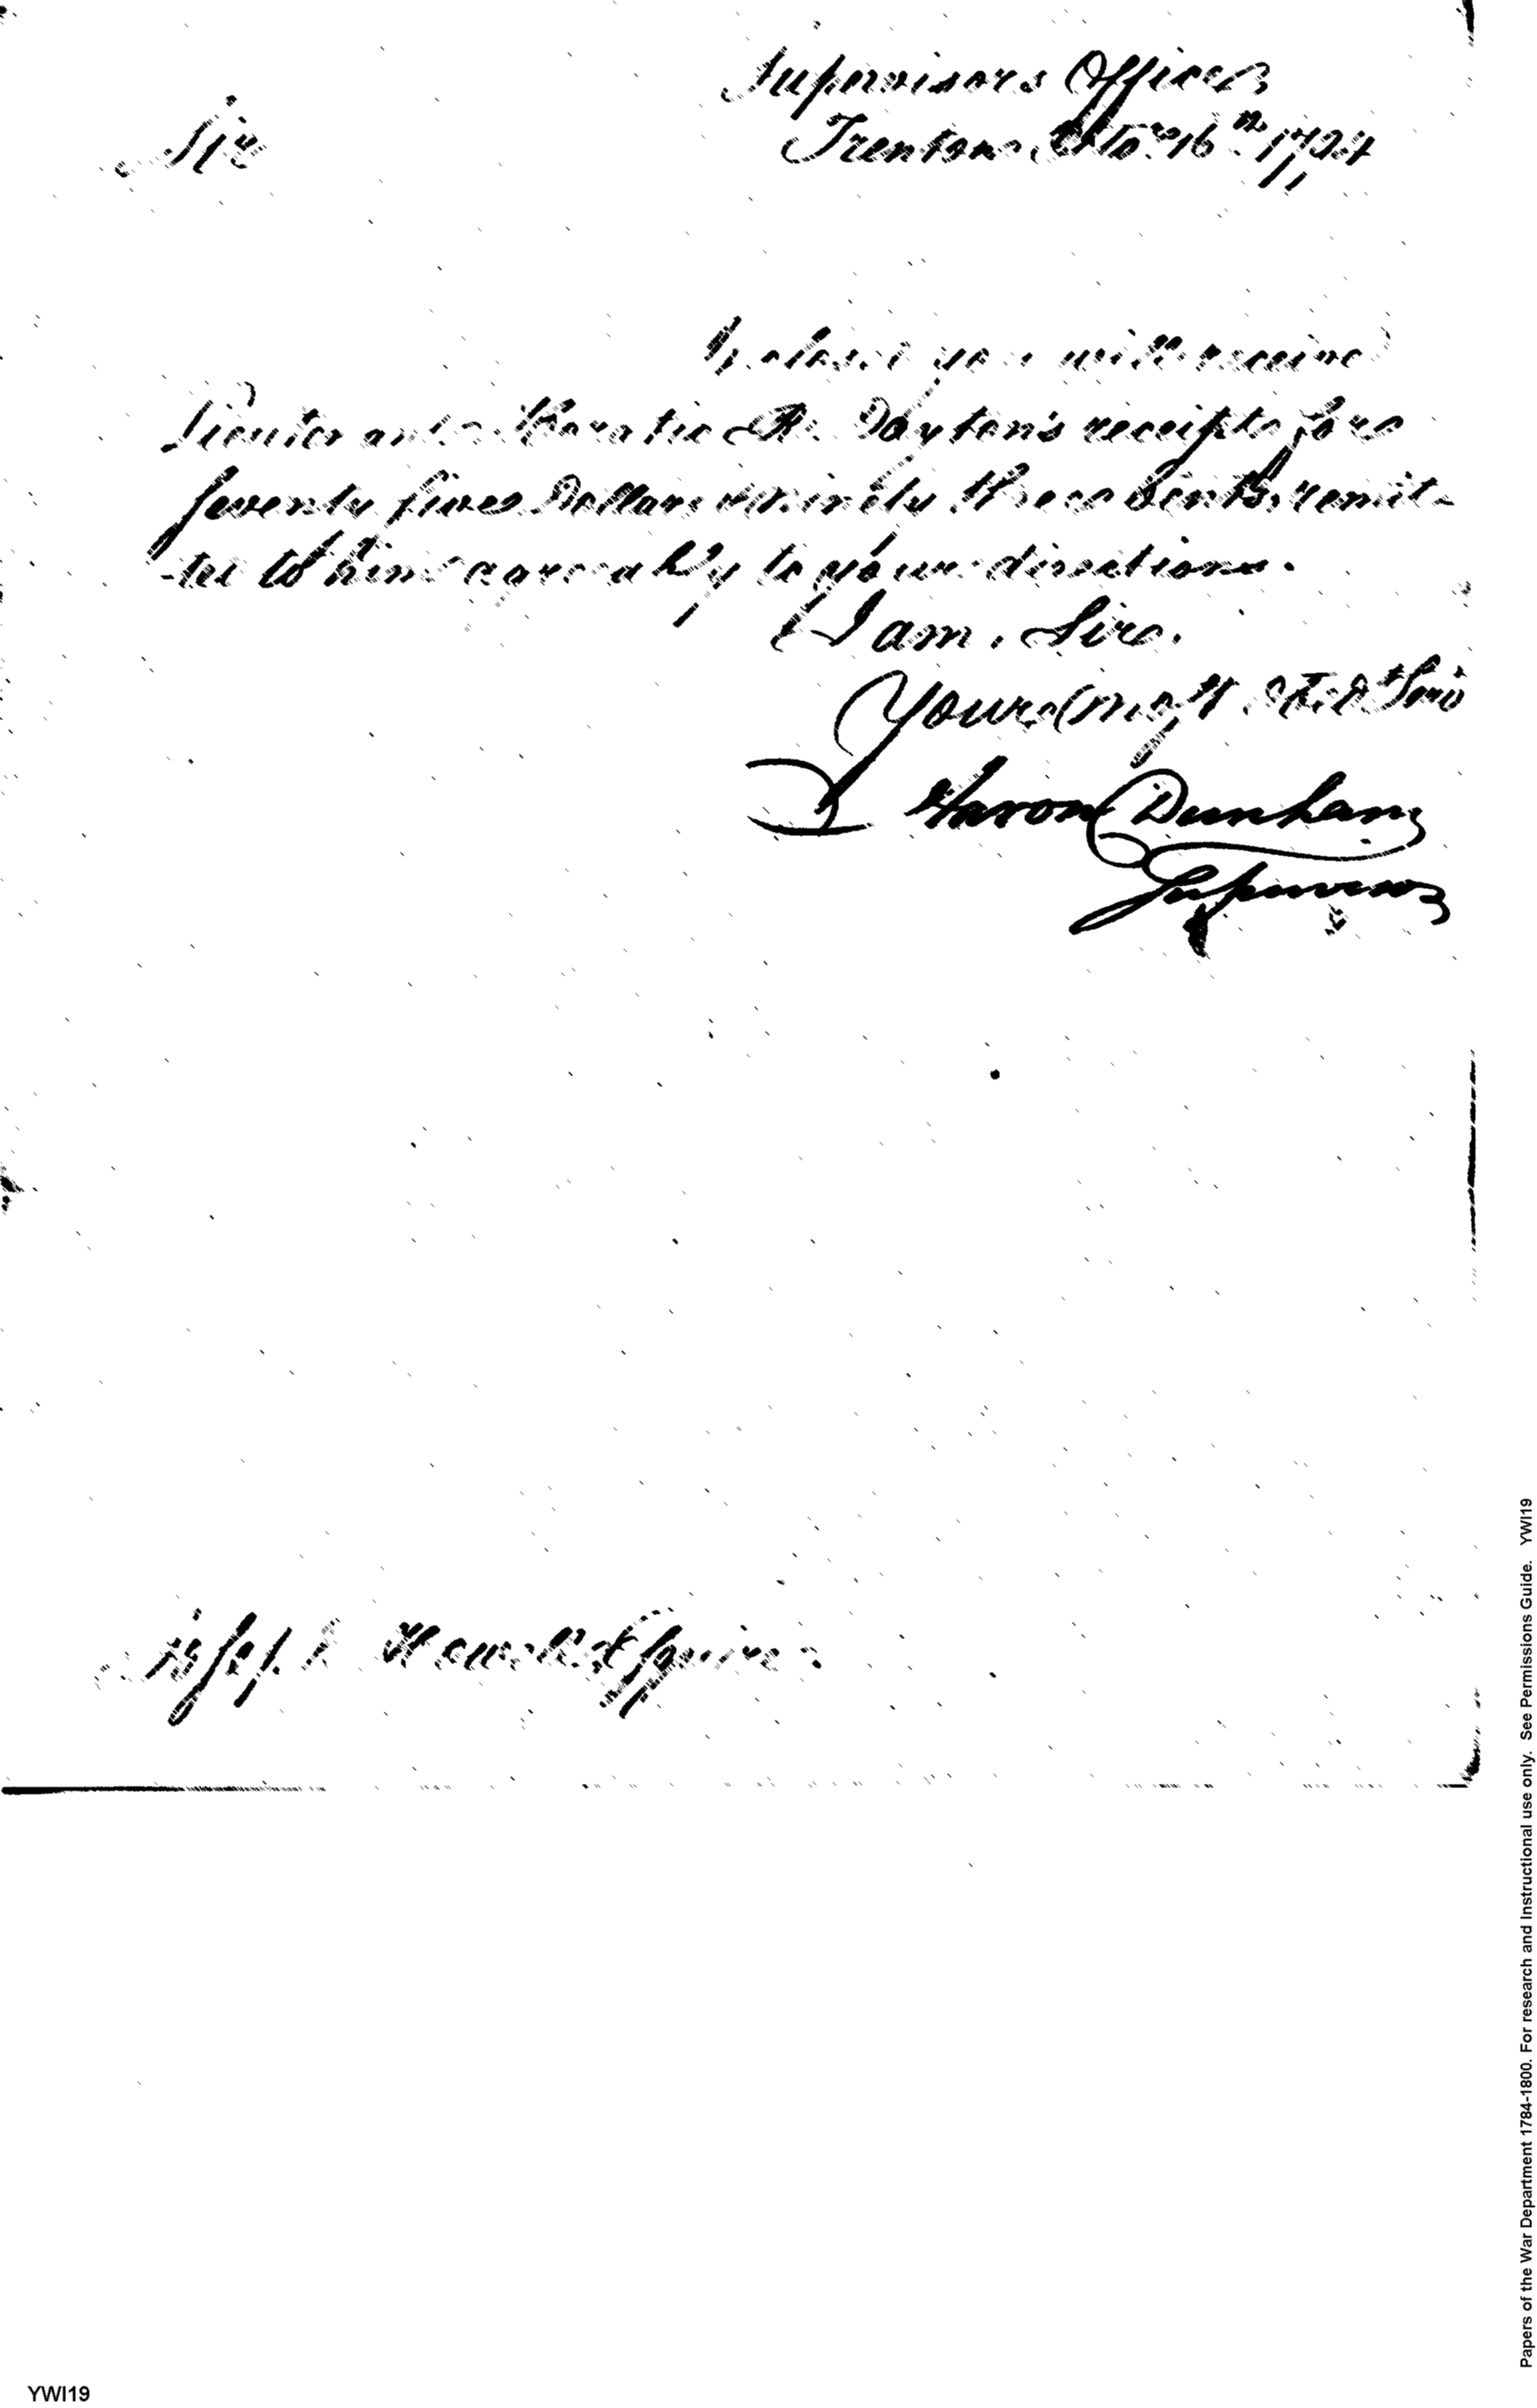 Supervisors Office
Trenton Octo.r 16.th 1794
Sir
Inclosed you will receive
Lieutenant Horatio R. Dayton's receipts for
seventy five Dollars ninety three Cents, remit-
-ted to him agreeably to your directions.
I am, Sir.
Your Most Obd.t Serv
Aaron Dunham
Supervisor
Joseph Howell Esquire
Papers of the War Department 1784-1800. For research and Instructional use only. See Permissions Guide. YWI19
YWI19